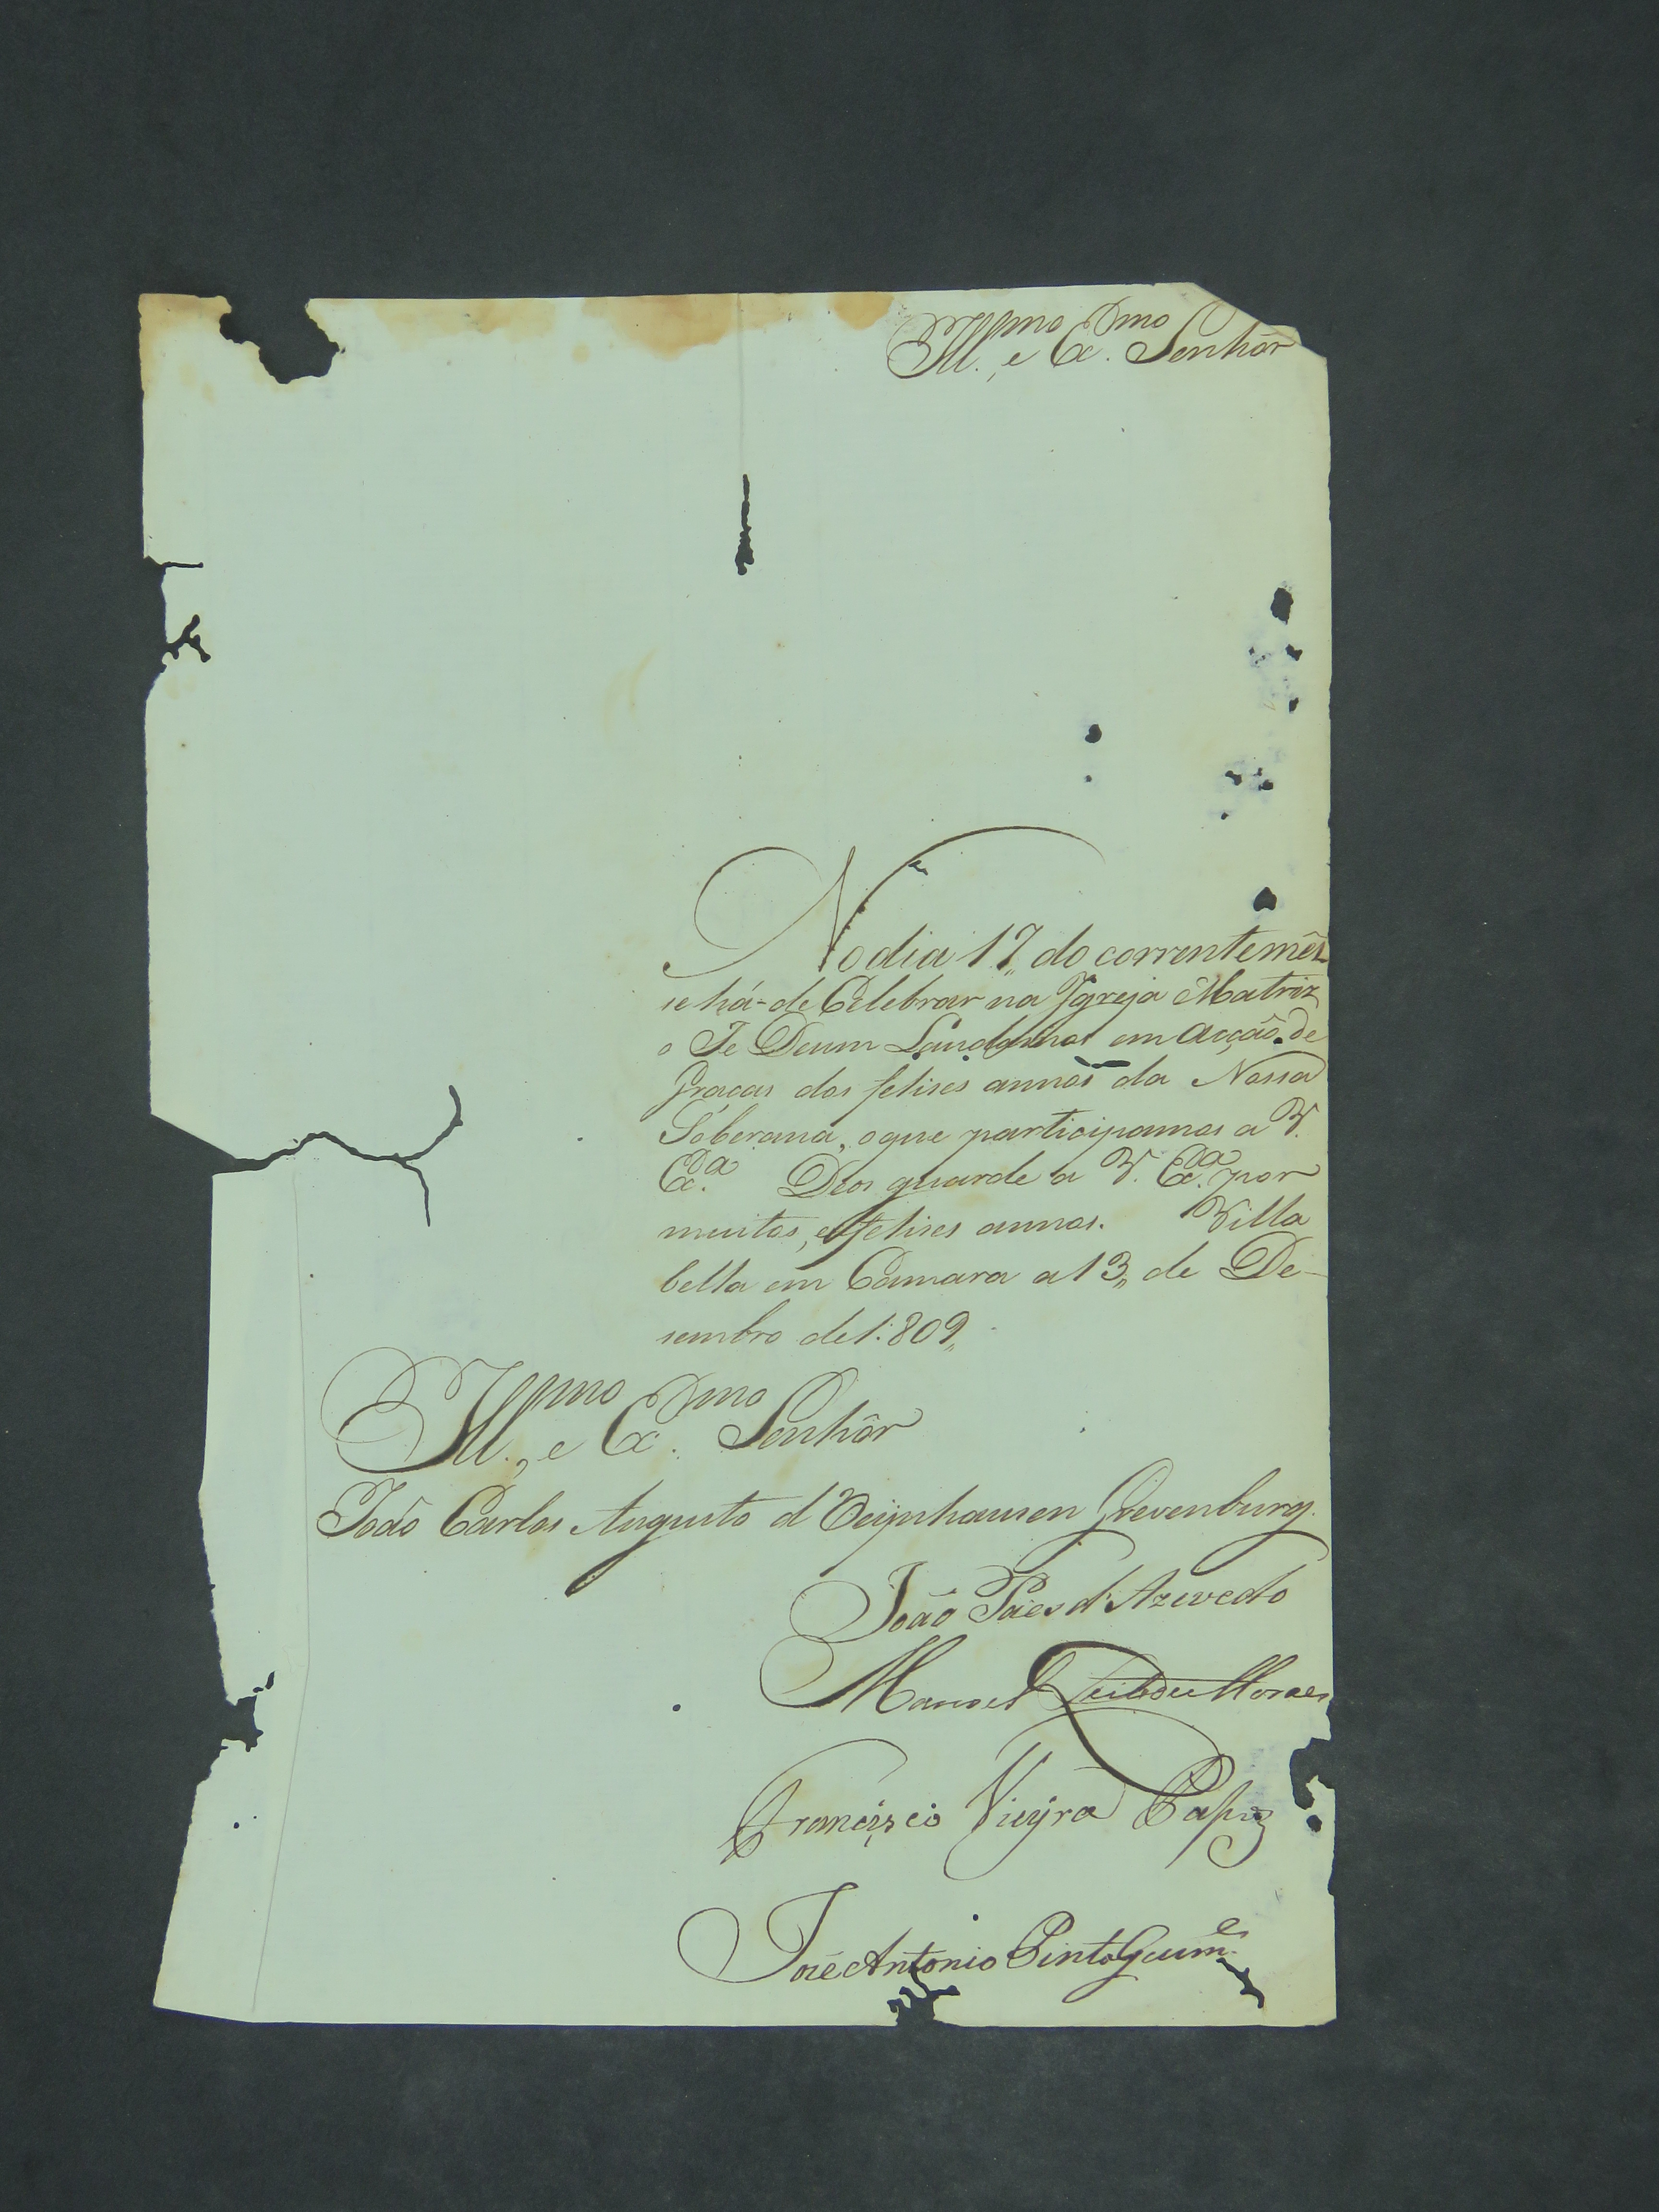 Ill.mo, e Ex.mo Senhôr
No dia 17,, do corrente mês
se há-de Celebrar na Igreja Matriz
o Te Deum Laudamos em Acçaõ de
Graças dos felises annos da Nossa
Soberana, o que participamos a V.
Ex.a Deos guarde a V. Ex.a por
muitos, e felises annos. Villa
bella em Camara a 13,, de De-
sembro de 1:809,,
Ill.mo, e Ex.mo Senhôr
Joaõ Carlos Augusto d'Oeijnhausen Grevenburg.
João Paes d'Azevedo
Manoel Moraes
Francisco Vieyra
Joze Antonio Pinto Guim.es